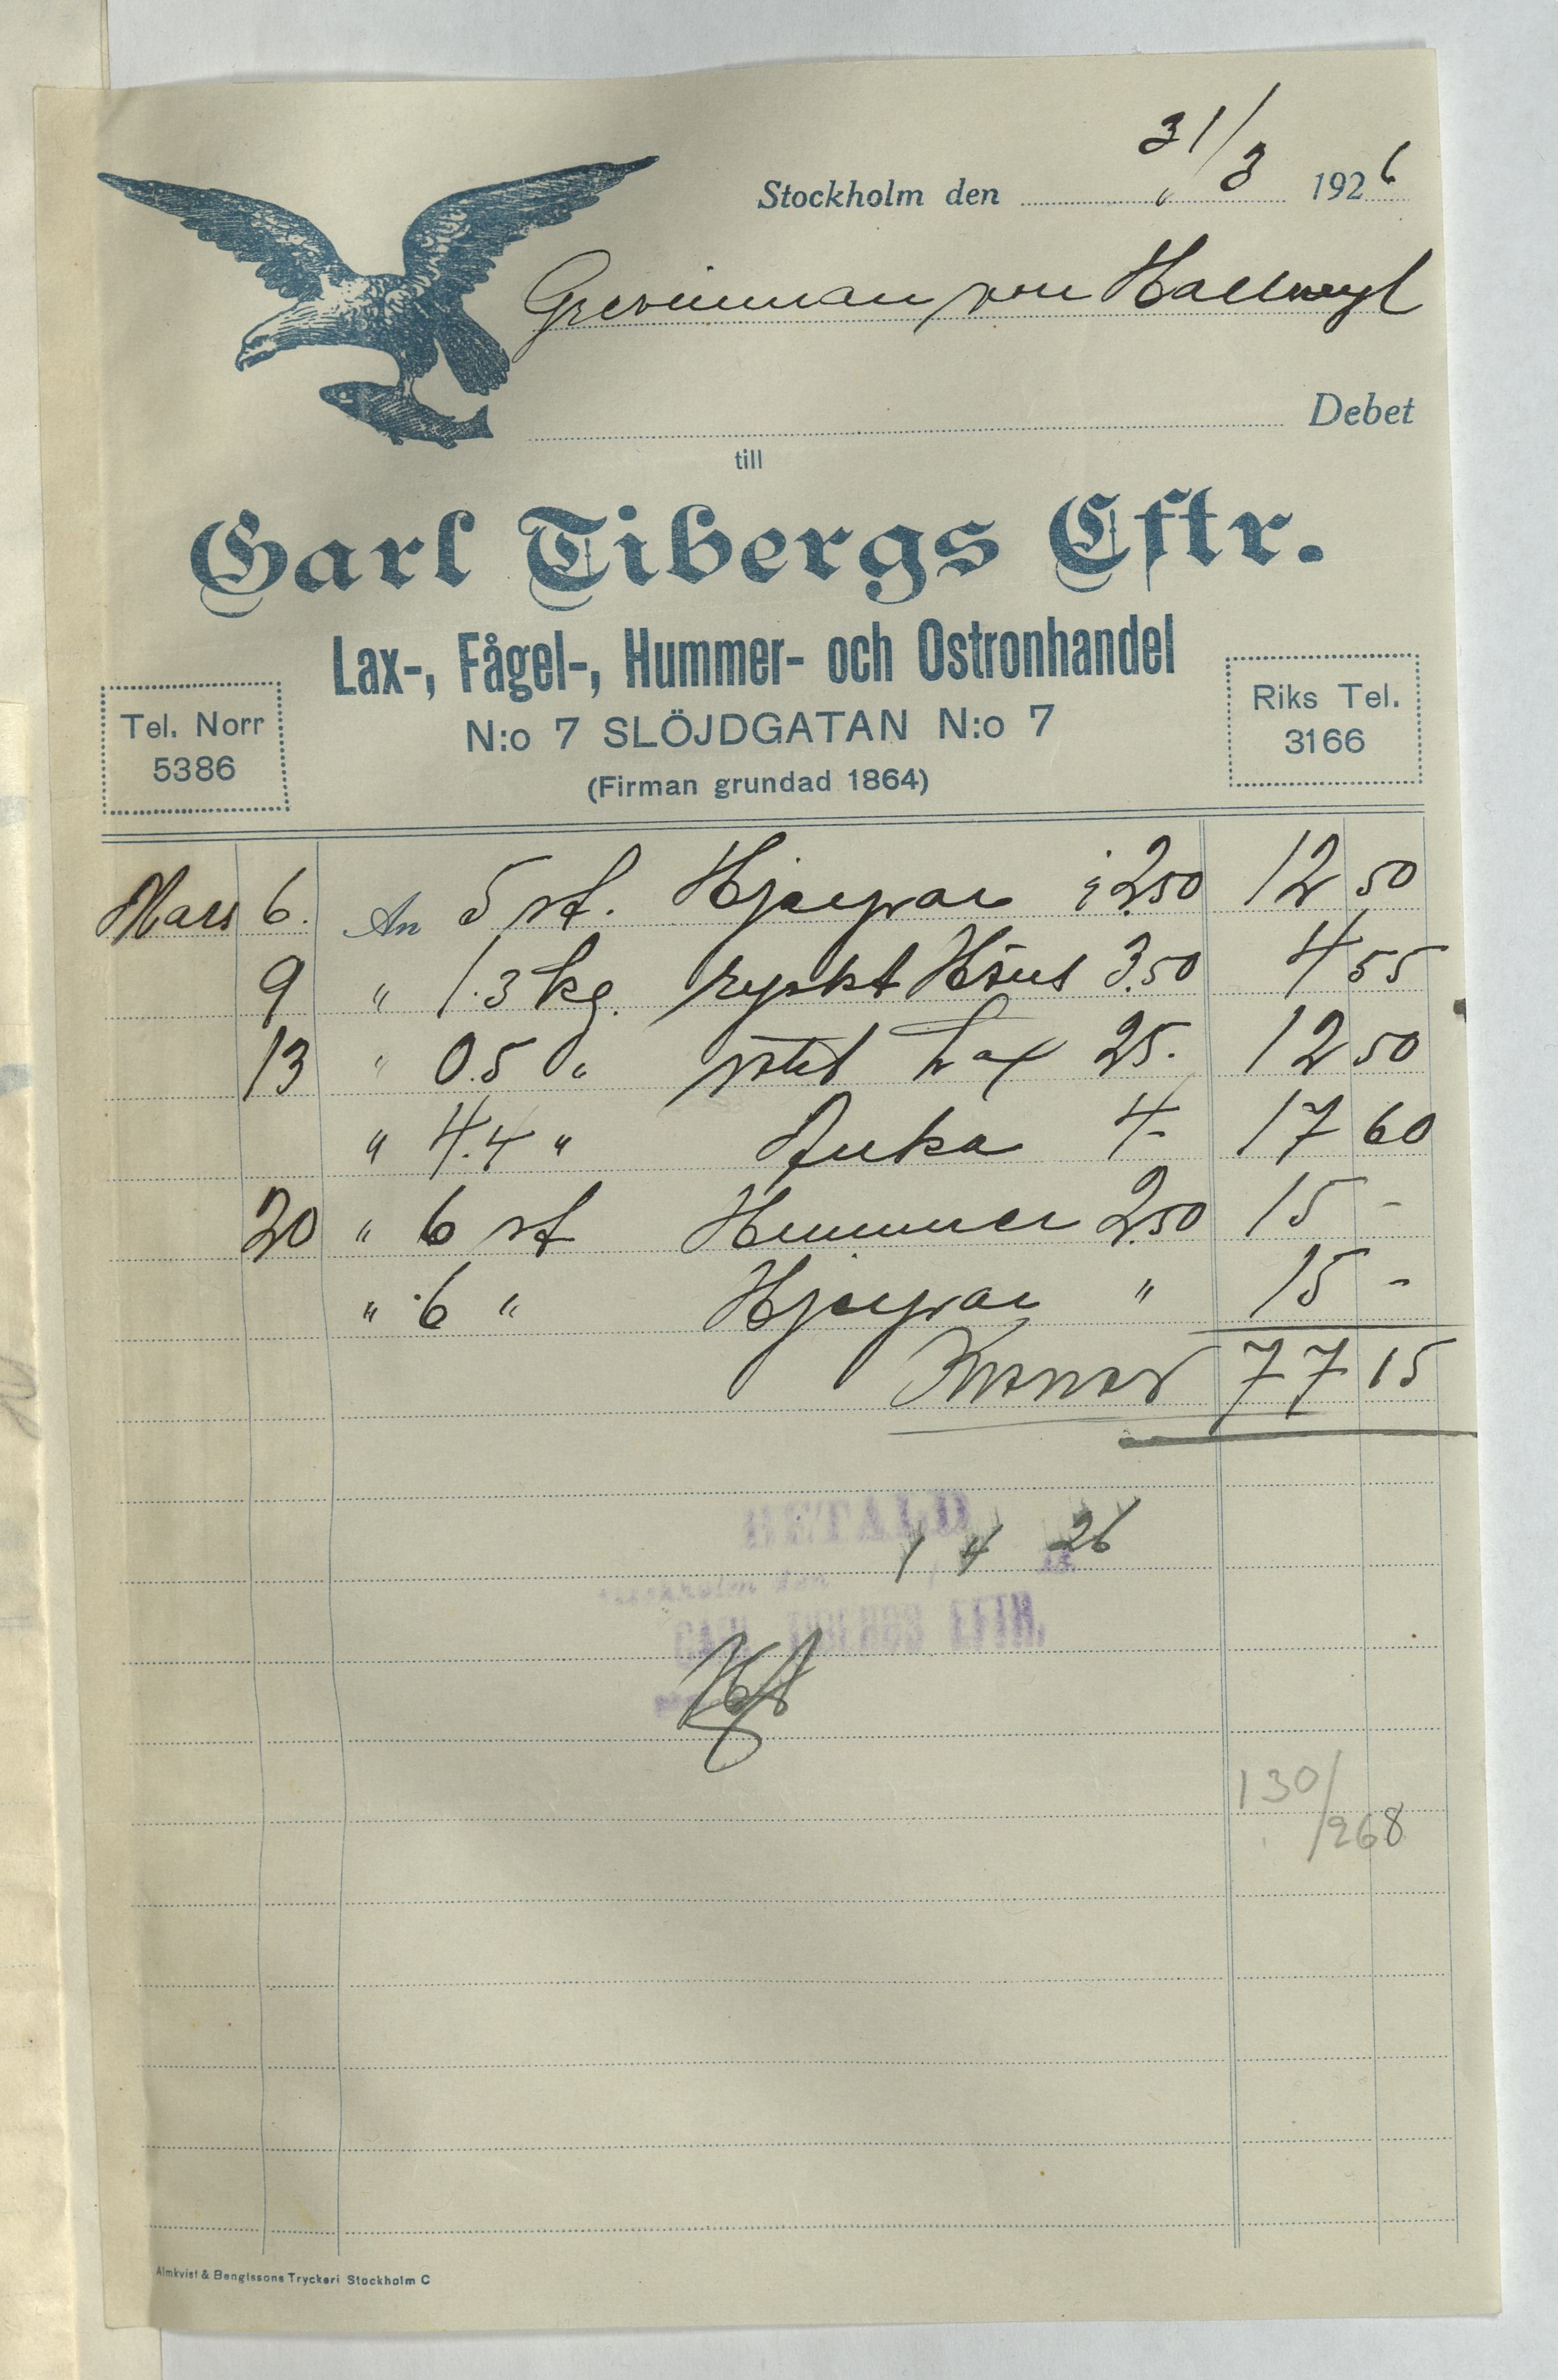 Stockholm den 31/3 1926
Grevinnan von Hallwyl
Debet
till
Carl Tibergs Eftr.
Lax-, Fågel-, Hummer- och Ostronhandel
Tel. Norr 5386
N:o 7 SLÖJDGATAN N:o 7
Riks Tel. 3166
(Firman grundad 1864)
Mars 6. An 5 st. Hjerpar à 2.50 12 50
9 " 1.3 kg. ryskt Höns 3.50 4 55
13 " 0.5 " rökt Lax 25. 12 50
" 4.4 " 4- 17 60
20 " 6 st Hummer 2.50 15 -
" 6 " Hjerpar " 15 -
Kronor 77 15
BETALD
1 4 26
Stockholm den
CARL TIBERGS EFTR.
130/268
Almkvist & Bengtssons Tryckeri Stockholm C